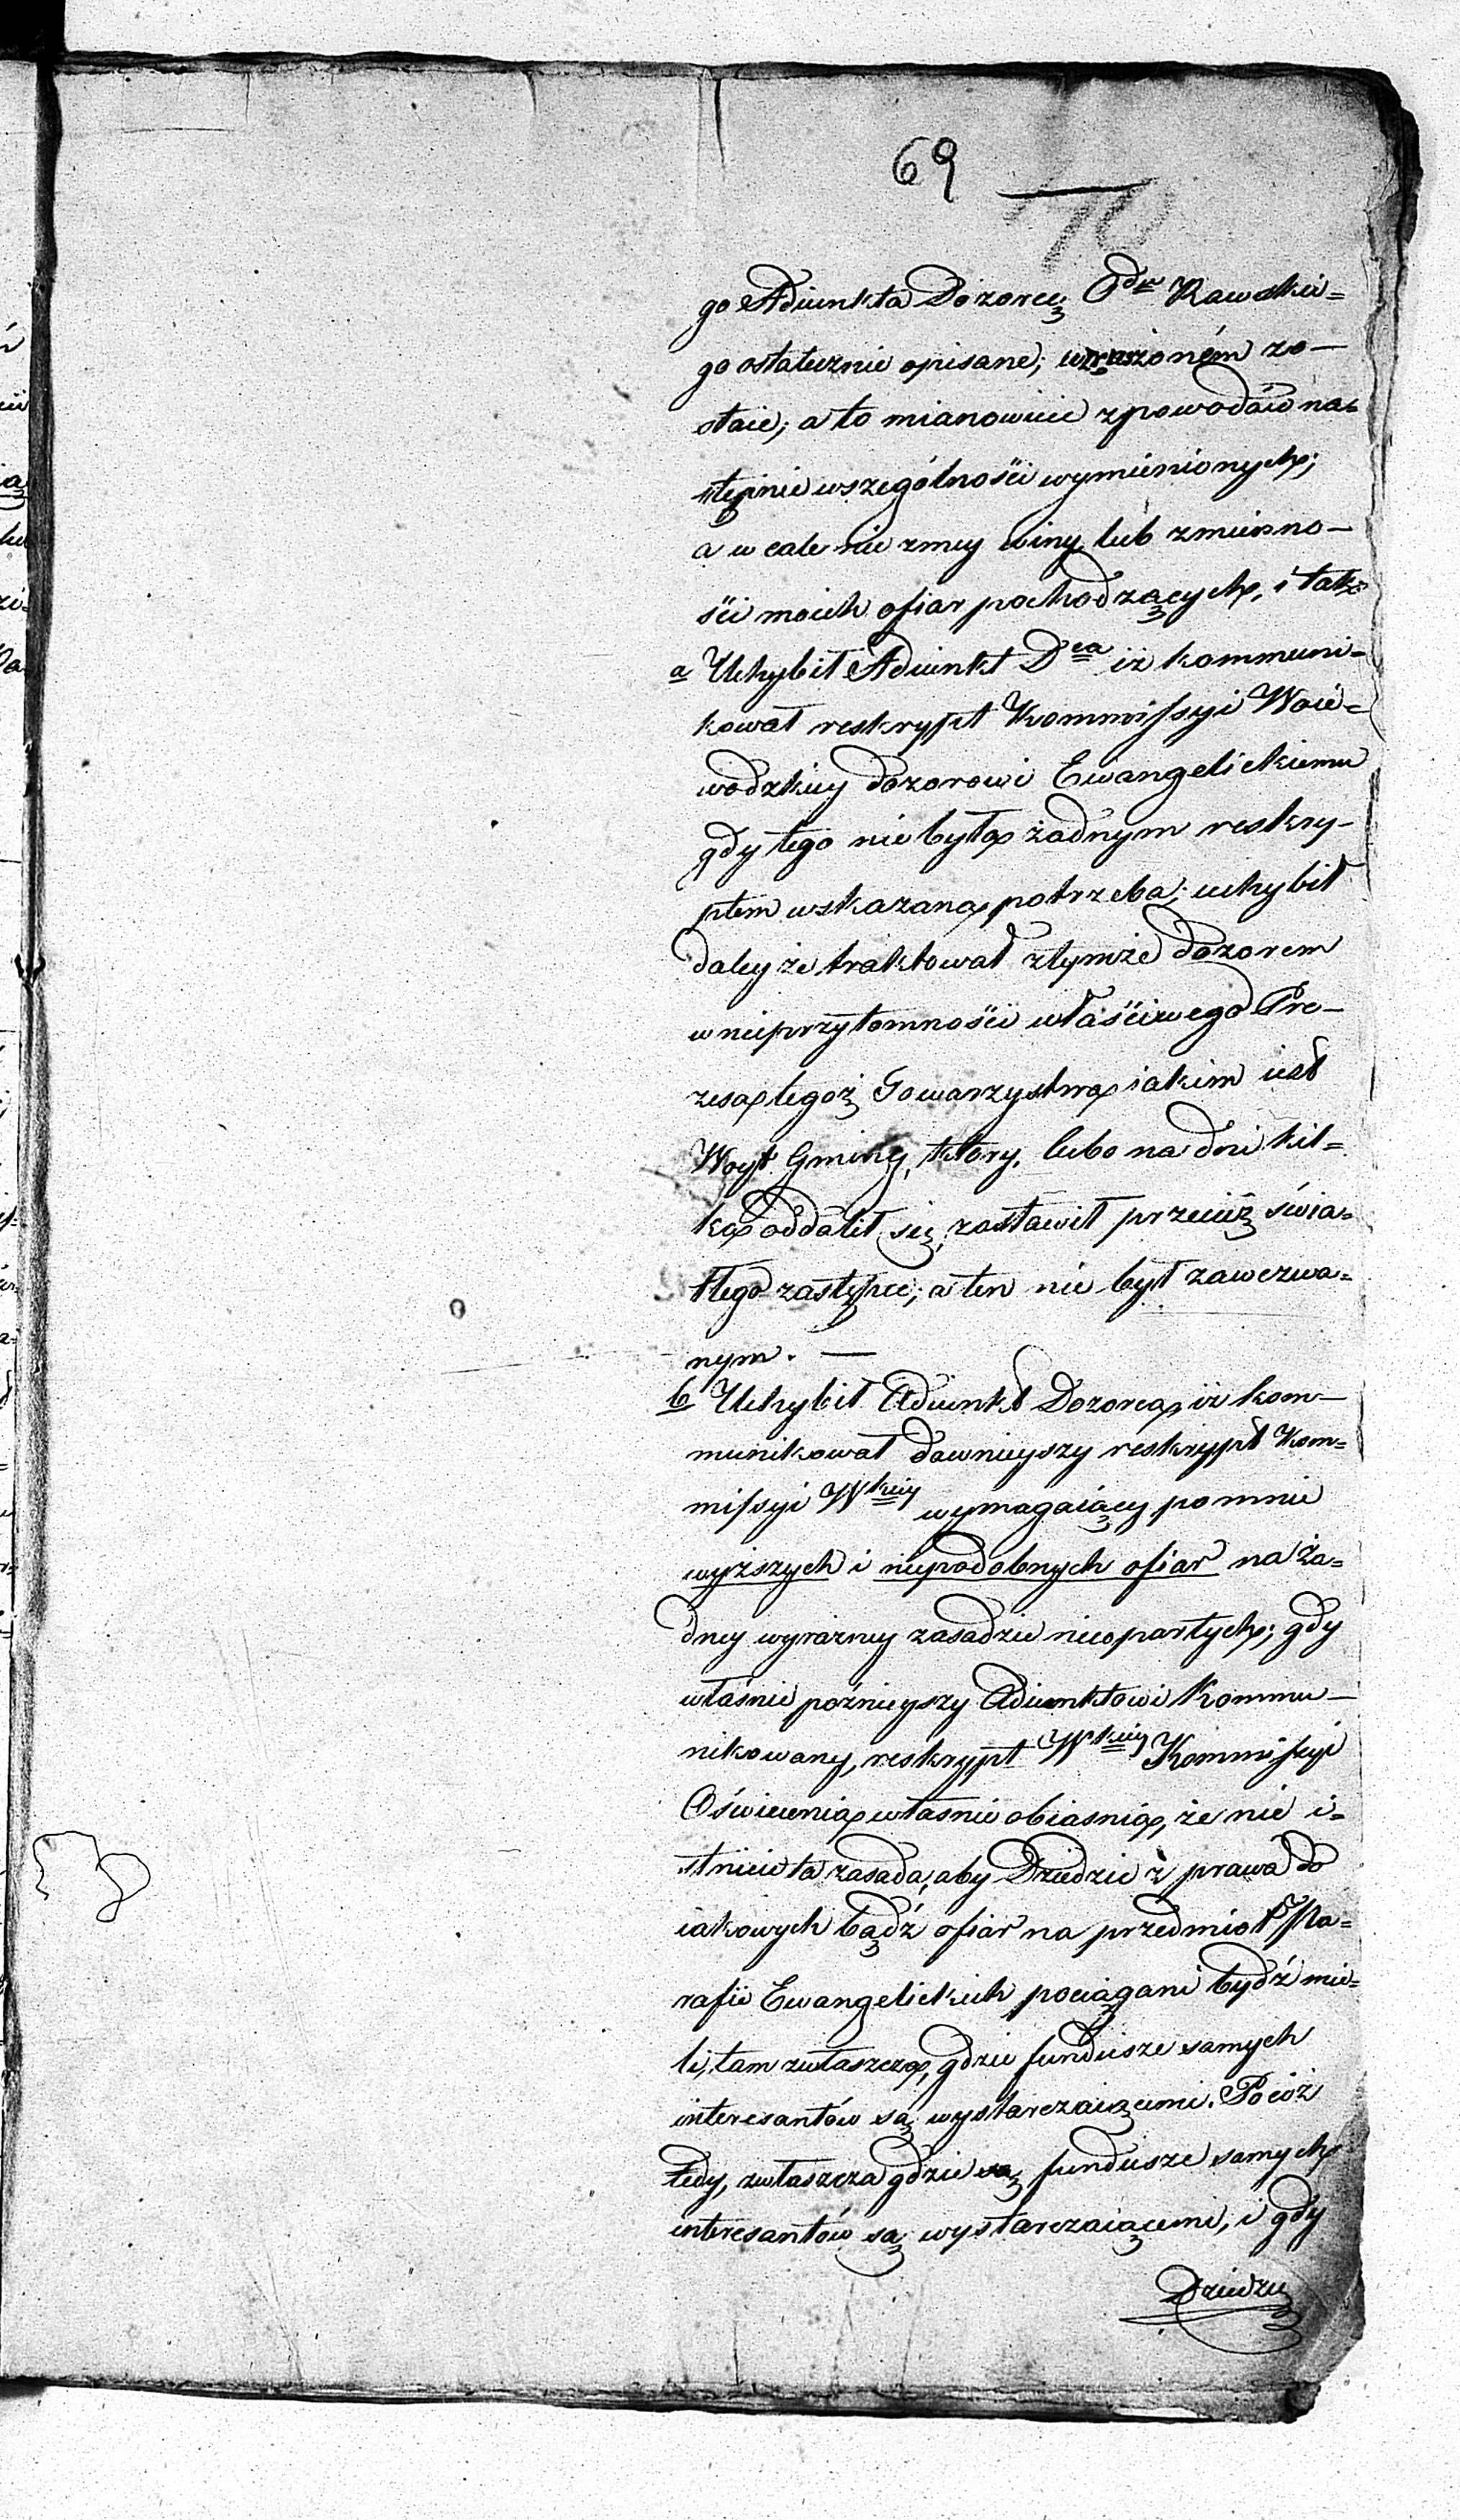 69
70
go Adiunkta Dozorcę Odu Rawskie=
go ostatecznie opisane, wzruszoném zo—
staie; a to mianowicie z powodów na=
stępnie wszególności wymienionych;
a w cale nie zmey winy lub zmienno—
ści moich ofiar pochodzących, i tak:
a Uchybił Adiunkt Dca iż kommuni=
kował reskrypt Kommissyi Woie=
wodzkiey dozorowi Ewangelickiemu
gdy tego nie była żadnym reskry—
ptem wskazana potrzeba; uchybił
daley że traktował z tymże dozorem
w nieprzytomności właściwego Pre—
zesa tegoż Towarzystwa iakim iest
Woyt Gminy, który, lubo na dni kil=
ka oddalił się, zostawił przecież świa=
tłego zastępcę; a ten nie był zawezwa=
nym. —
b Uchybił Adiunkt Dozorca iż kom—
munikował dawnieyszy reskrypt Kom=
missyi Wkiey wymagaiący po mnie
wyższych i niepodobnych ofiar na ża=
dney wyrazney zasadzie nieopartych; gdy
właśnie poźnieyszy Adiunktowi Kommu—
nikowany, reskrypt Wkiey Kommissyi
Oświecenia właśnie obiasnia, że nie i=
stnieie ta zasada, aby Dziedzice z prawa do
iakowych bądź ofiar na przedmiot Pa=
rafii Ewangelickich pociągani bydź mie=
li, tam zwłaszcza, gdzie fundusze samych
interesantów są wystarczaiącemi. Pocóż
tedy, zwłaszcza gdzie są fundusze samych
interesantów są wystarczaiącemi, i gdy
Dziedzic